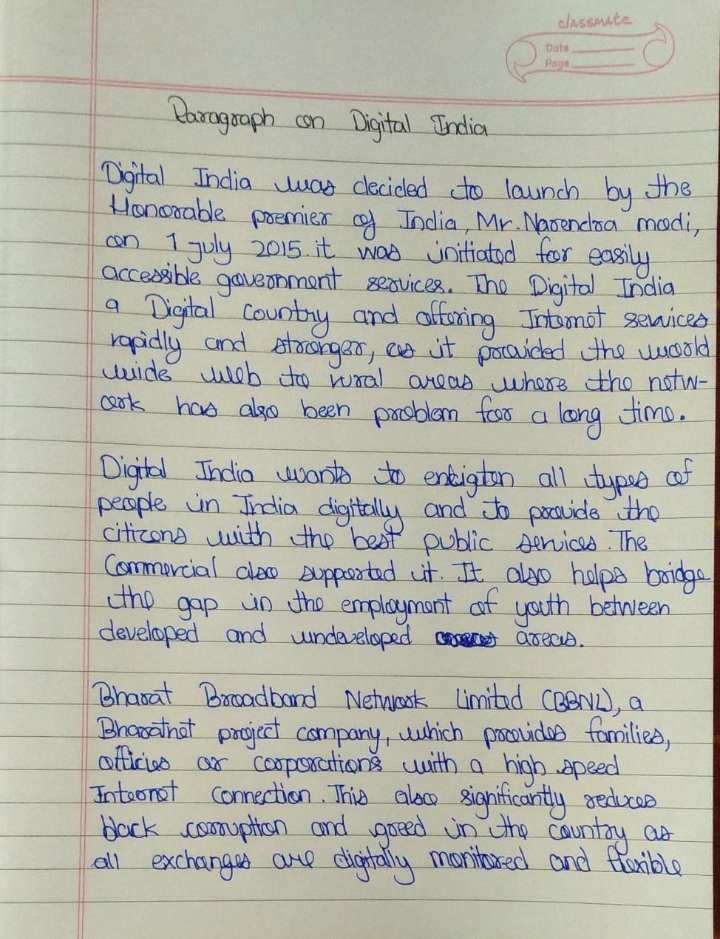 classmate
Date
Page
Paragraph on Digital India
Digital India was decided to launch by the
Honorable premier of India, Mr. Narendra modi,
on 1 july 2015. it was initiated for easily
accessible government services. The Digital India
a Digital country and offering Internet services
rapidly and stronger, as it provided the world
wide web to rural areas where the netw-
ork has also been problem for a long time.
Digital India wants to enligten all types of
people in India digitally and to provide the
citizens with the best public services. The
Commercial also supported it. It also helps bridge
the gap in the employment of youth between
developed and undeveloped areas.
Bharat Broadband Network Limited (BBNL), a
Bharatnet project company, which provides families,
officies or corporations with a high speed
Internet connection. This also significantly reduces
black corruption and greed in the country as
all exchanges are digitally monitored and flexible